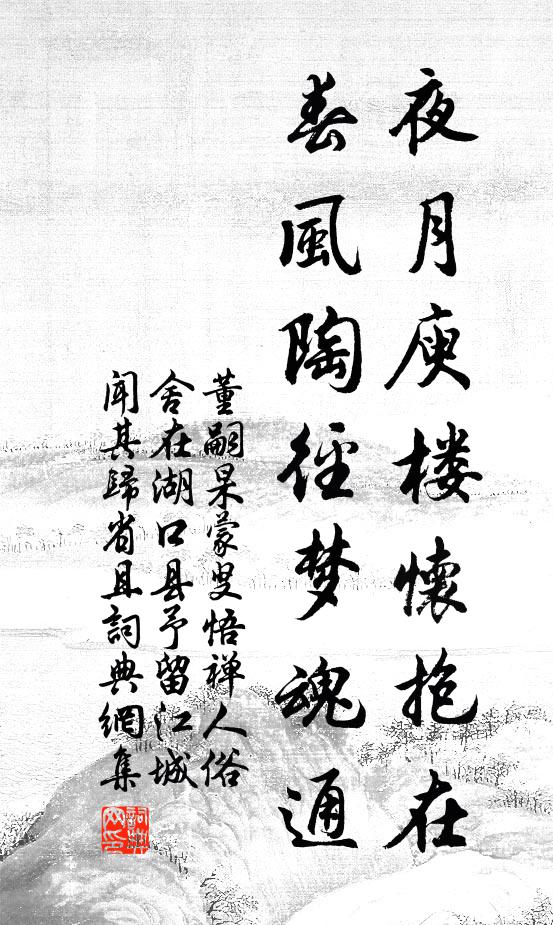 夜月庾楼懷抱在
春風陶徑梦魂通
董嗣杲蒙叟悟禅人俗
舍在湖口县予留江城
闻其歸省且詞典網集